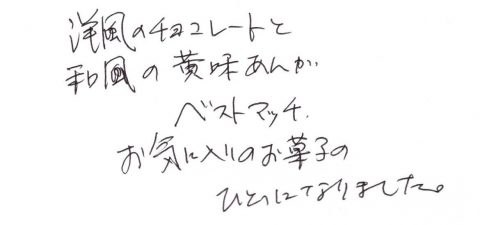 洋風のチョコレートと
和風の黄味あんが
ベストマッチ.
お気に入りのお菓子の
ひとつになりました。